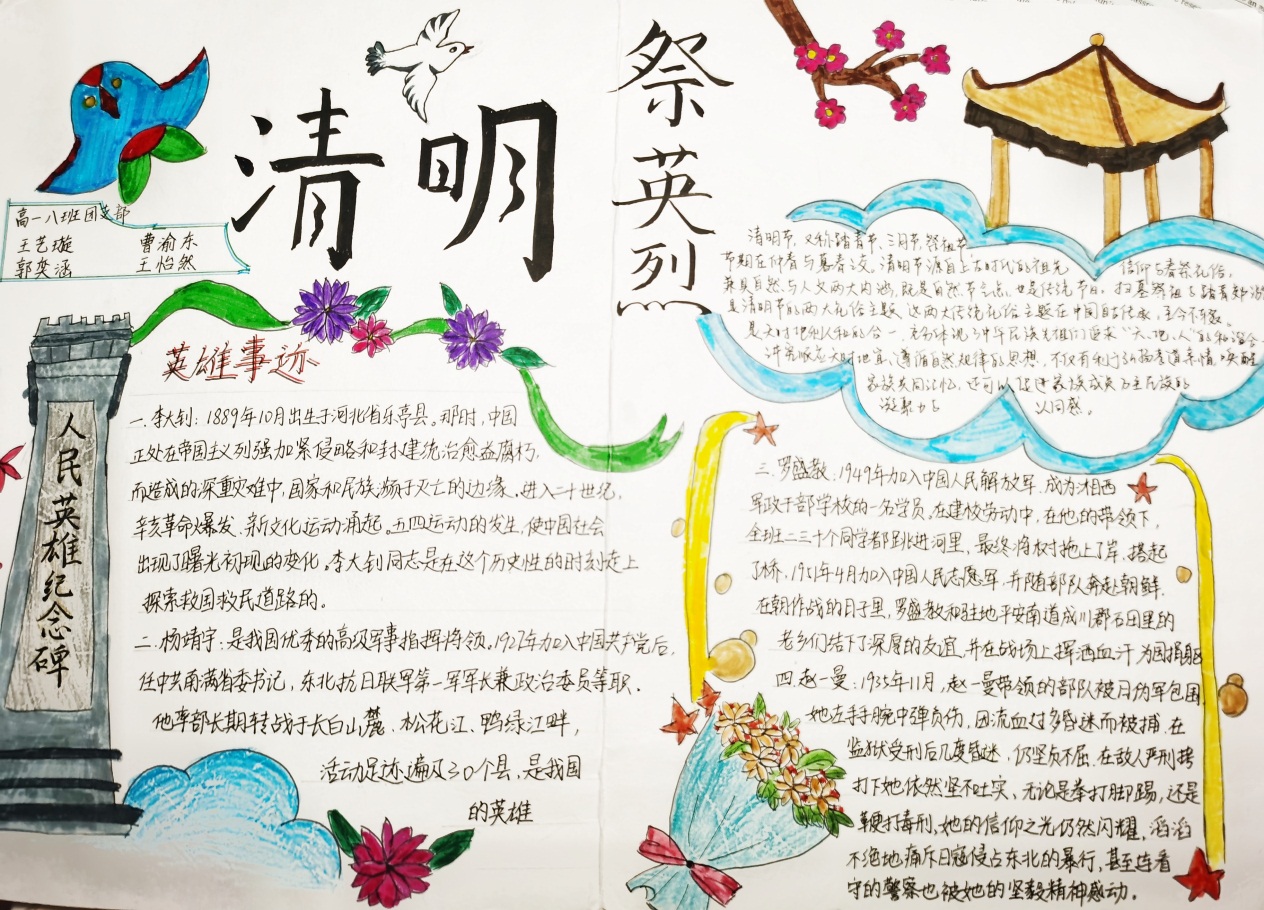 清明
祭英烈
高一八班团支部
王艺璇 曹渝东
郭奕涵 王怡然
人民英雄纪念碑
英雄事迹
一.李大钊:1889年10月出生于河北省乐亭县。那时,中国
正处在帝国主义列强加紧侵略和封建统治愈益腐朽,
而造成的深重灾难中,国家和民族濒于灭亡的边缘。进入二十世纪,
辛亥革命爆发、新文化运动涌起。五四运动的发生,使中国社会
出现了曙光初现的变化。李大钊同志是在这个历史性的时刻走上
探索救国救民道路的。
二.杨靖宇:是我国优秀的高级军事指挥将领。1927年加入中国共产党后,
任中共南满省委书记,东北抗日联军第一军军长兼政治委员等职.
他率部长期转战于长白山麓、松花江、鸭绿江畔,
活动足迹遍及30个县,是我国
的英雄
清明节,又称踏青节、三月节、祭祖节
节期在仲春与暮春之交。清明节源自上古时代的祖先 信仰与春祭礼俗,
兼具自然与人文两大内涵,既是自然节气点,也是传统节日,扫墓祭祖与踏青郊游
是清明节的两大礼俗主题,这两大传统礼俗主题在中国自古传承,至今不辍。
是天时地利人和的合一,充分体现了中华民族先祖们追求“天、地、人”的和谐合一
讲究顺应天时地宜、遵循自然规律的思想。不仅有利于弘扬孝道亲情、唤醒
家族共同记忆,还可以促进家族成员乃至民族的
凝聚力与 认同感。
三.罗盛教:1949年加入中国人民解放军.成为湘西
军政干部学校的一名学员。在建校劳动中,在他的带领下,
全班二三十个同学都跳进河里,最终将树拖上了岸,搭起
了桥,1951年4月加入中国人民志愿军,并随部队奔赴朝鲜.
在朝作战的日子里,罗盛教和驻地平安南道成川郡石田里的
老乡们结下了深厚的友谊,并在战场上挥洒血汗为国捐躯
四.赵一曼:1935年11月,赵一曼带领的部队被日伪军包围,
她左手手腕中弹负伤,因流血过多昏迷而被捕.在
监狱受刑后几度昏迷,仍坚贞不屈.在敌人严刑拷
打下她依然坚不吐实、无论是拳打脚踢,还是
鞭打毒刑,她的信仰之光仍然闪耀,滔滔
不绝地痛斥日寇侵占东北的暴行,甚至连看
守的警察也被她的坚毅精神感动.